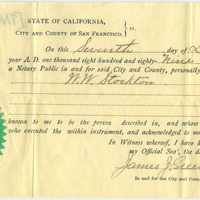 STATE OF CALIFORNIA,
CITY AND COUNTY OF SAN FRANCISCO. } ss.
On this Seventh day of
year A. D. one thousand eight hundred and eighty-Nine
a Notary Public in and for said City and County, personally
W. W. Stockton
known to me to be the person described in, and whose
who executed the within instrument, and acknowledged to me
In Witness whereof, I have
my Official Seal, the
James J.
In and for the City and